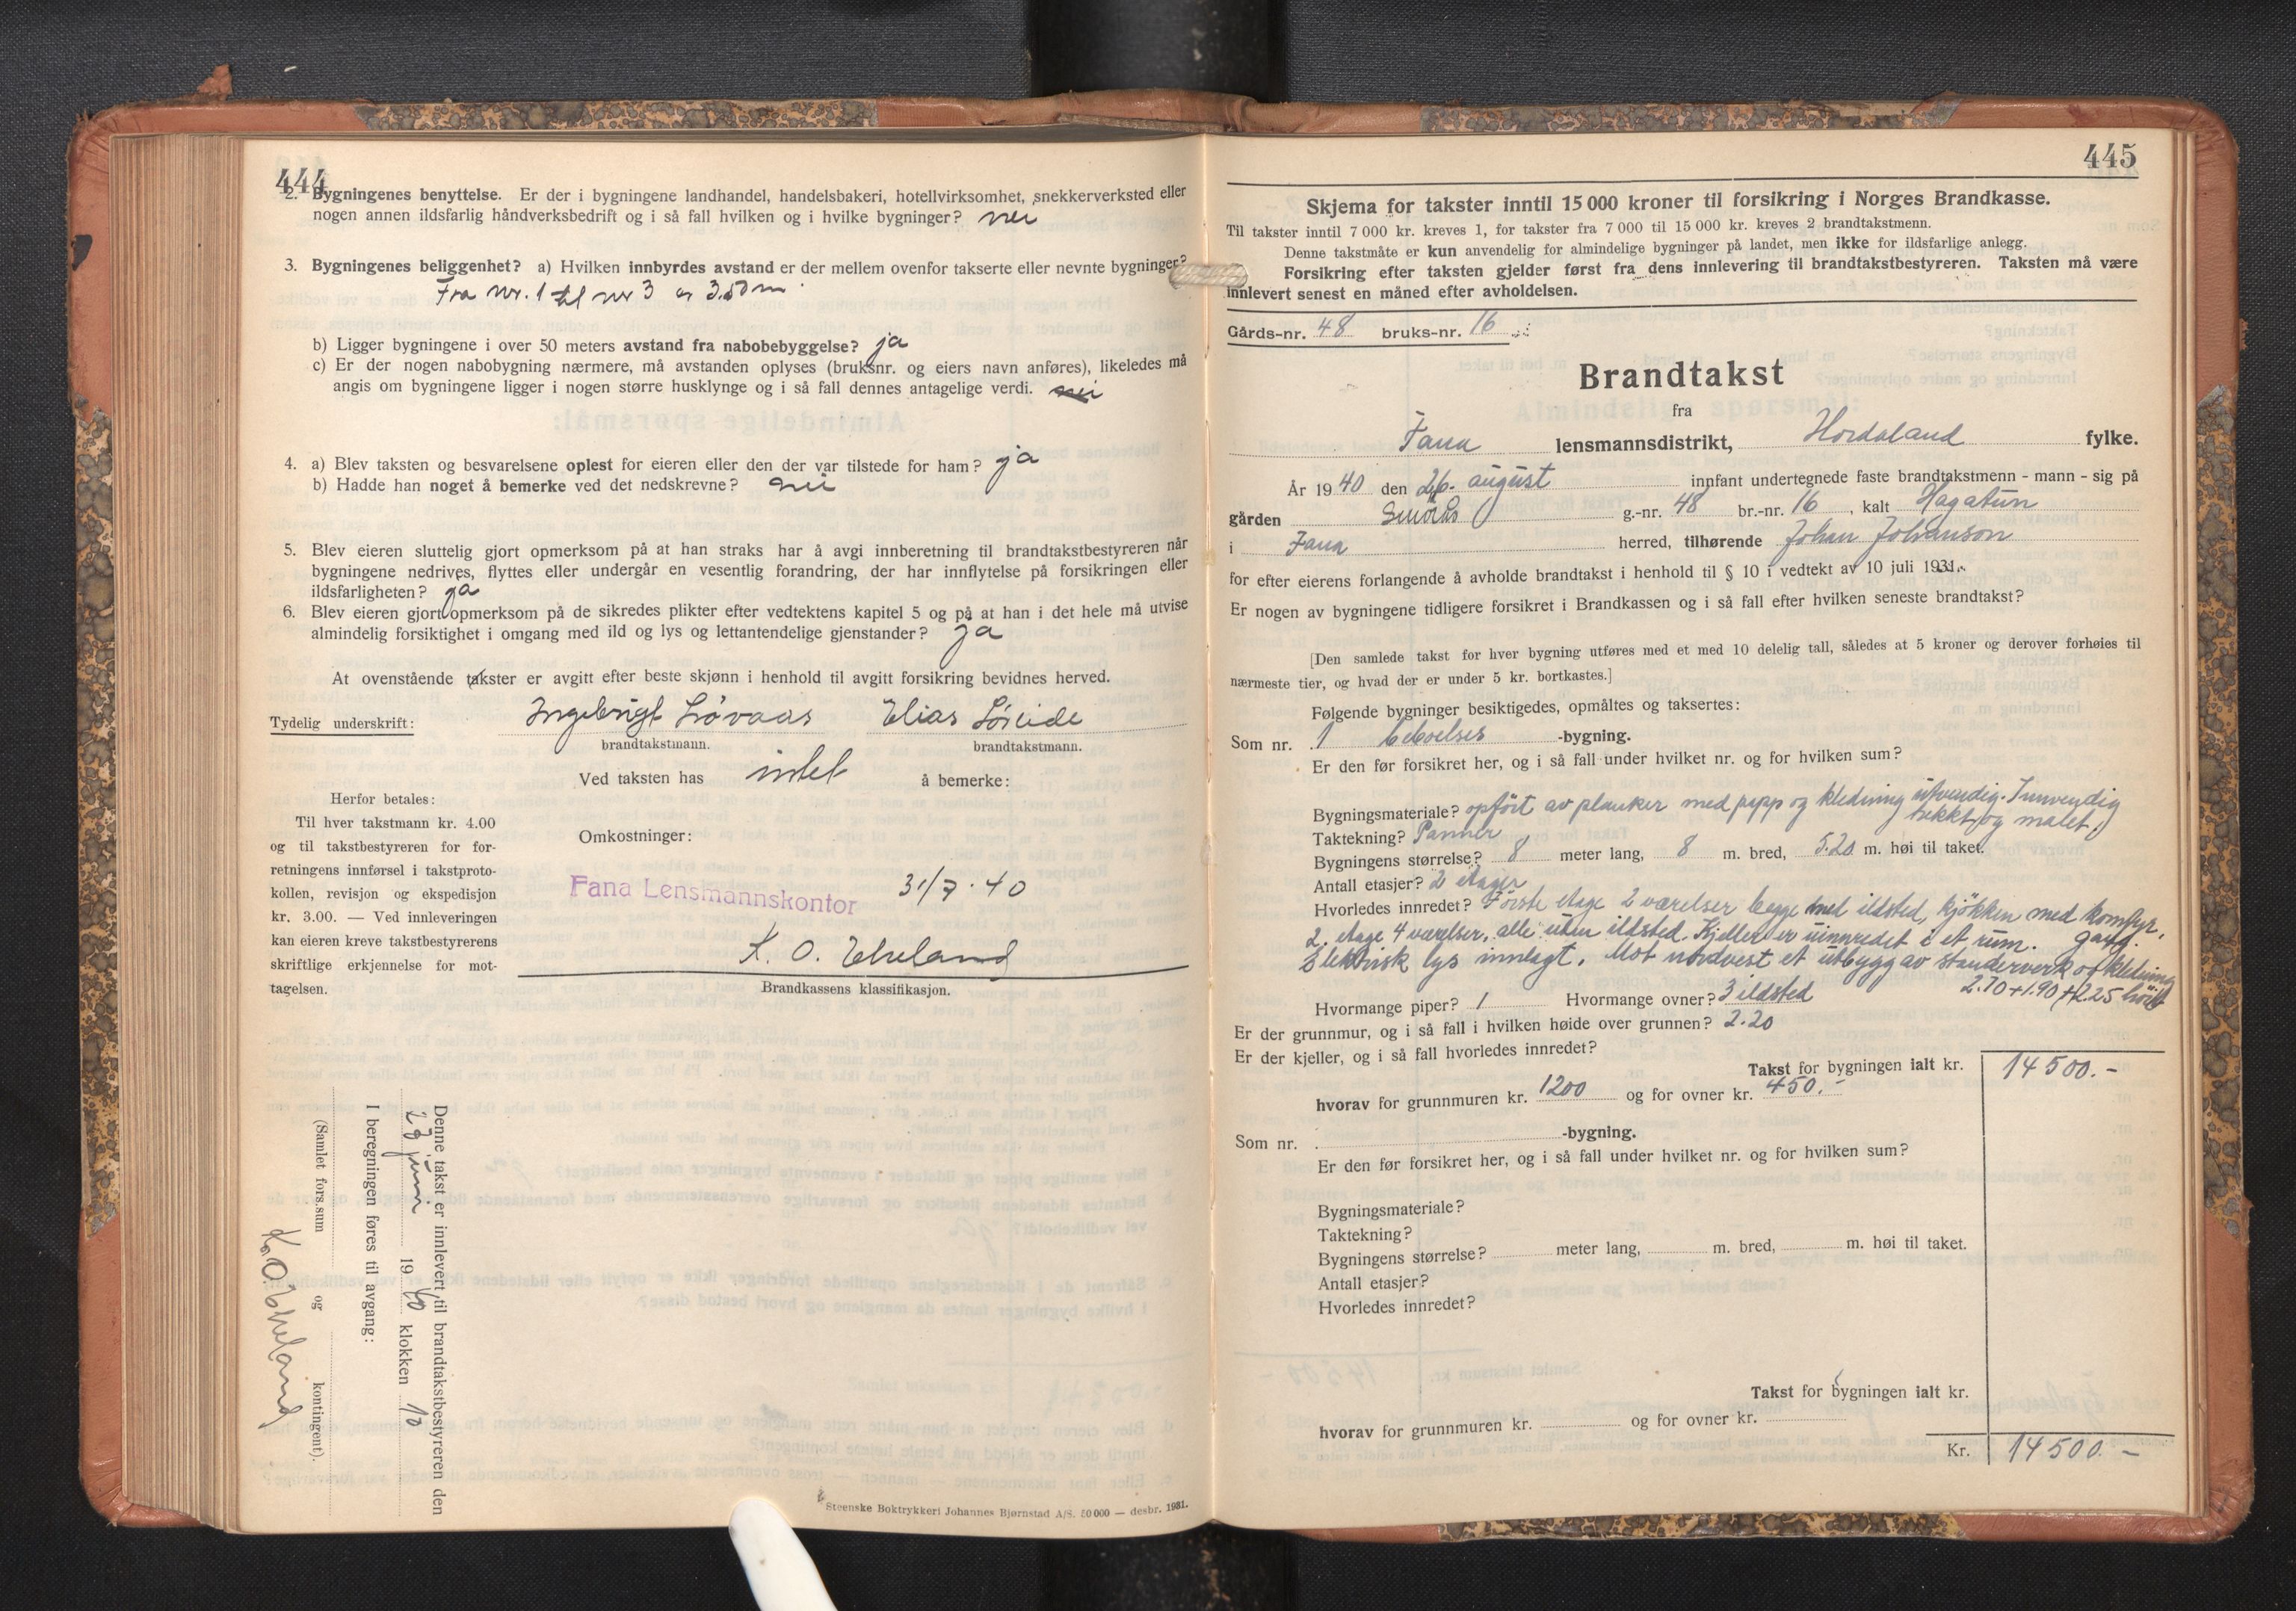 444
2. Bygningenes benyttelse. Er der i bygningene landhandel, handelsbakeri, hotellvirksomhet, snekkerverksted eller
nogen annen ildsfarlig håndverksbedrift og i så fall hvilken og i hvilke bygninger? nei
3. Bygningenes beliggenhet? a) Hvilken innbyrdes avstand er der mellem ovenfor takserte eller nevnte bygninger?
Fra nr. 1 til nr 3 er 3.50 m.
b) Ligger bygningene i over 50 meters avstand fra nabobebyggelse? ja
c) Er der nogen nabobygning nærmere, må avstanden oplyses (bruksnr. og eiers navn anføres), likeledes må
angis om bygningene ligger i nogen større husklynge og i så fall dennes antagelige verdi. nei
4. a) Blev taksten og besvarelsene oplest for eieren eller den der var tilstede for ham? ja
b) Hadde han noget å bemerke ved det nedskrevne? nei
5. Blev eieren sluttelig gjort opmerksom på at han straks har å avgi innberetning til brandtakstbestyreren når
bygningene nedrives, flyttes eller undergår en vesentlig forandring, der har innflytelse på forsikringen eller
ildsfarligheten? ja
6. Blev eieren gjort opmerksom på de sikredes plikter efter vedtektens kapitel 5 og på at han i det hele må utvise
almindelig forsiktighet i omgang med ild og lys og lettantendelige gjenstander? ja
At ovenstående takster er avgitt efter beste skjønn i henhold til avgitt forsikring bevidnes herved.
Tydelig underskrift: Ingebrigt Løvaas Elias Løseide
brandtakstmann. brandtakstmann.
Ved taksten has intet å bemerke:
Herfor betales:
Til hver takstmann kr. 4.00
og til takstbestyreren for for-
retningens innførsel i takstproto-
kollen, revisjon og ekspedisjon
kr. 3.00. — Ved innleveringen
kan eieren kreve takstbestyrerens
skriftlige erkjennelse for mot-
tagelsen.
Omkostninger:
Fana Lensmannskontor 31/7.40
K. O.
Brandkassens klassifikasjon.
Denne takst er innlevert til brandtakstbestyreren den
29 juni 1940 klokken 10
I beregningen føres til avgang:
(Samlet fors.sum og kontingent).
K. O.
Steenske Boktrykkeri Johannes Bjørnstad A/S. 50 000 — desbr. 1931.
445
Skjema for takster inntil 15 000 kroner til forsikring i Norges Brandkasse.
Til takster inntil 7 000 kr. kreves 1, for takster fra 7 000 til 15 000 kr. kreves 2 brandtakstmenn.
Denne takstmåte er kun anvendelig for almindelige bygninger på landet, men ikke for ildsfarlige anlegg.
Forsikring efter taksten gjelder først fra dens innlevering til brandtakstbestyreren. Taksten må være
innlevert senest en måned efter avholdelsen.
Gårds-nr. 48 bruks-nr. 16
Brandtakst
fra
Fana lensmannsdistrikt, Hordaland fylke.
År 1940 den 26. august innfant undertegnede faste brandtakstmenn - mann - sig på
gården Smörås g.-nr. 48 br.-nr. 16, kalt Hagatun
i Fana herred, tilhørende Johan Johanson
for efter eierens forlangende å avholde brandtakst i henhold til § 10 i vedtekt av 10 juli 1931.
Er nogen av bygningene tidligere forsikret i Brandkassen og i så fall efter hvilken seneste brandtakst?
[Den samlede takst for hver bygning utføres med et med 10 delelig tall, således at 5 kroner og derover forhøies til
nærmeste tier, og hvad der er under 5 kr. bortkastes.]
Følgende bygninger besiktigedes, opmåltes og taksertes:
Som nr. 1 beboelses -bygning.
Er den før forsikret her, og i så fall under hvilket nr. og for hvilken sum?
Bygningsmateriale? opfört av planker med papp og kledning utvendig. Innvendig
trekkt og malet.
Taktekning? Panner
Bygningens størrelse? 8 meter lang, 8 m. bred, 5.20 m. høi til taket.
Antall etasjer? 2 etager
Hvorledes innredet? Förste etage 2 værelser begge med ildsted, kjökken med komfyr, gang.
2. etage 4 værelser, alle uten ildsted. Kjeller er uinnredet i et rum.
Elektrisk lys innlagt. Mot nordvest et utbygg av standerverk og kledning
2.70+1.90+2.25 höit
Hvormange piper? 1 Hvormange ovner? 3 ildsted
Er der grunnmur, og i så fall i hvilken høide over grunnen? 2.20
Er der kjeller, og i så fall hvorledes innredet?
Takst for bygningen ialt kr. 14500.-
hvorav for grunnmuren kr. 1200 og for ovner kr. 450.-
Som nr. -bygning.
Er den før forsikret her, og i så fall under hvilket nr. og for hvilken sum?
Bygningsmateriale?
Taktekning?
Bygningens størrelse? meter lang, m. bred, m. høi til taket.
Antall etasjer?
Hvorledes innredet?
Takst for bygningen ialt kr.
hvorav for grunnmuren kr. og for ovner kr.
Kr. 14500.-